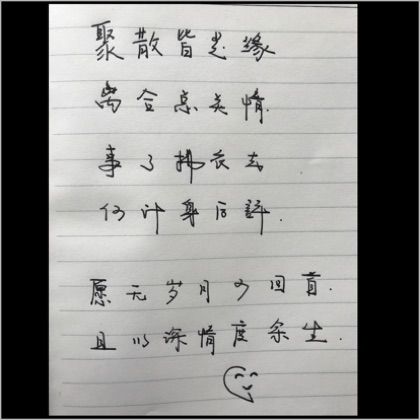 聚散皆是缘
离合总关情.
事了拂衣去
何计身后评.
愿无岁月可回首.
且以深情度余生.